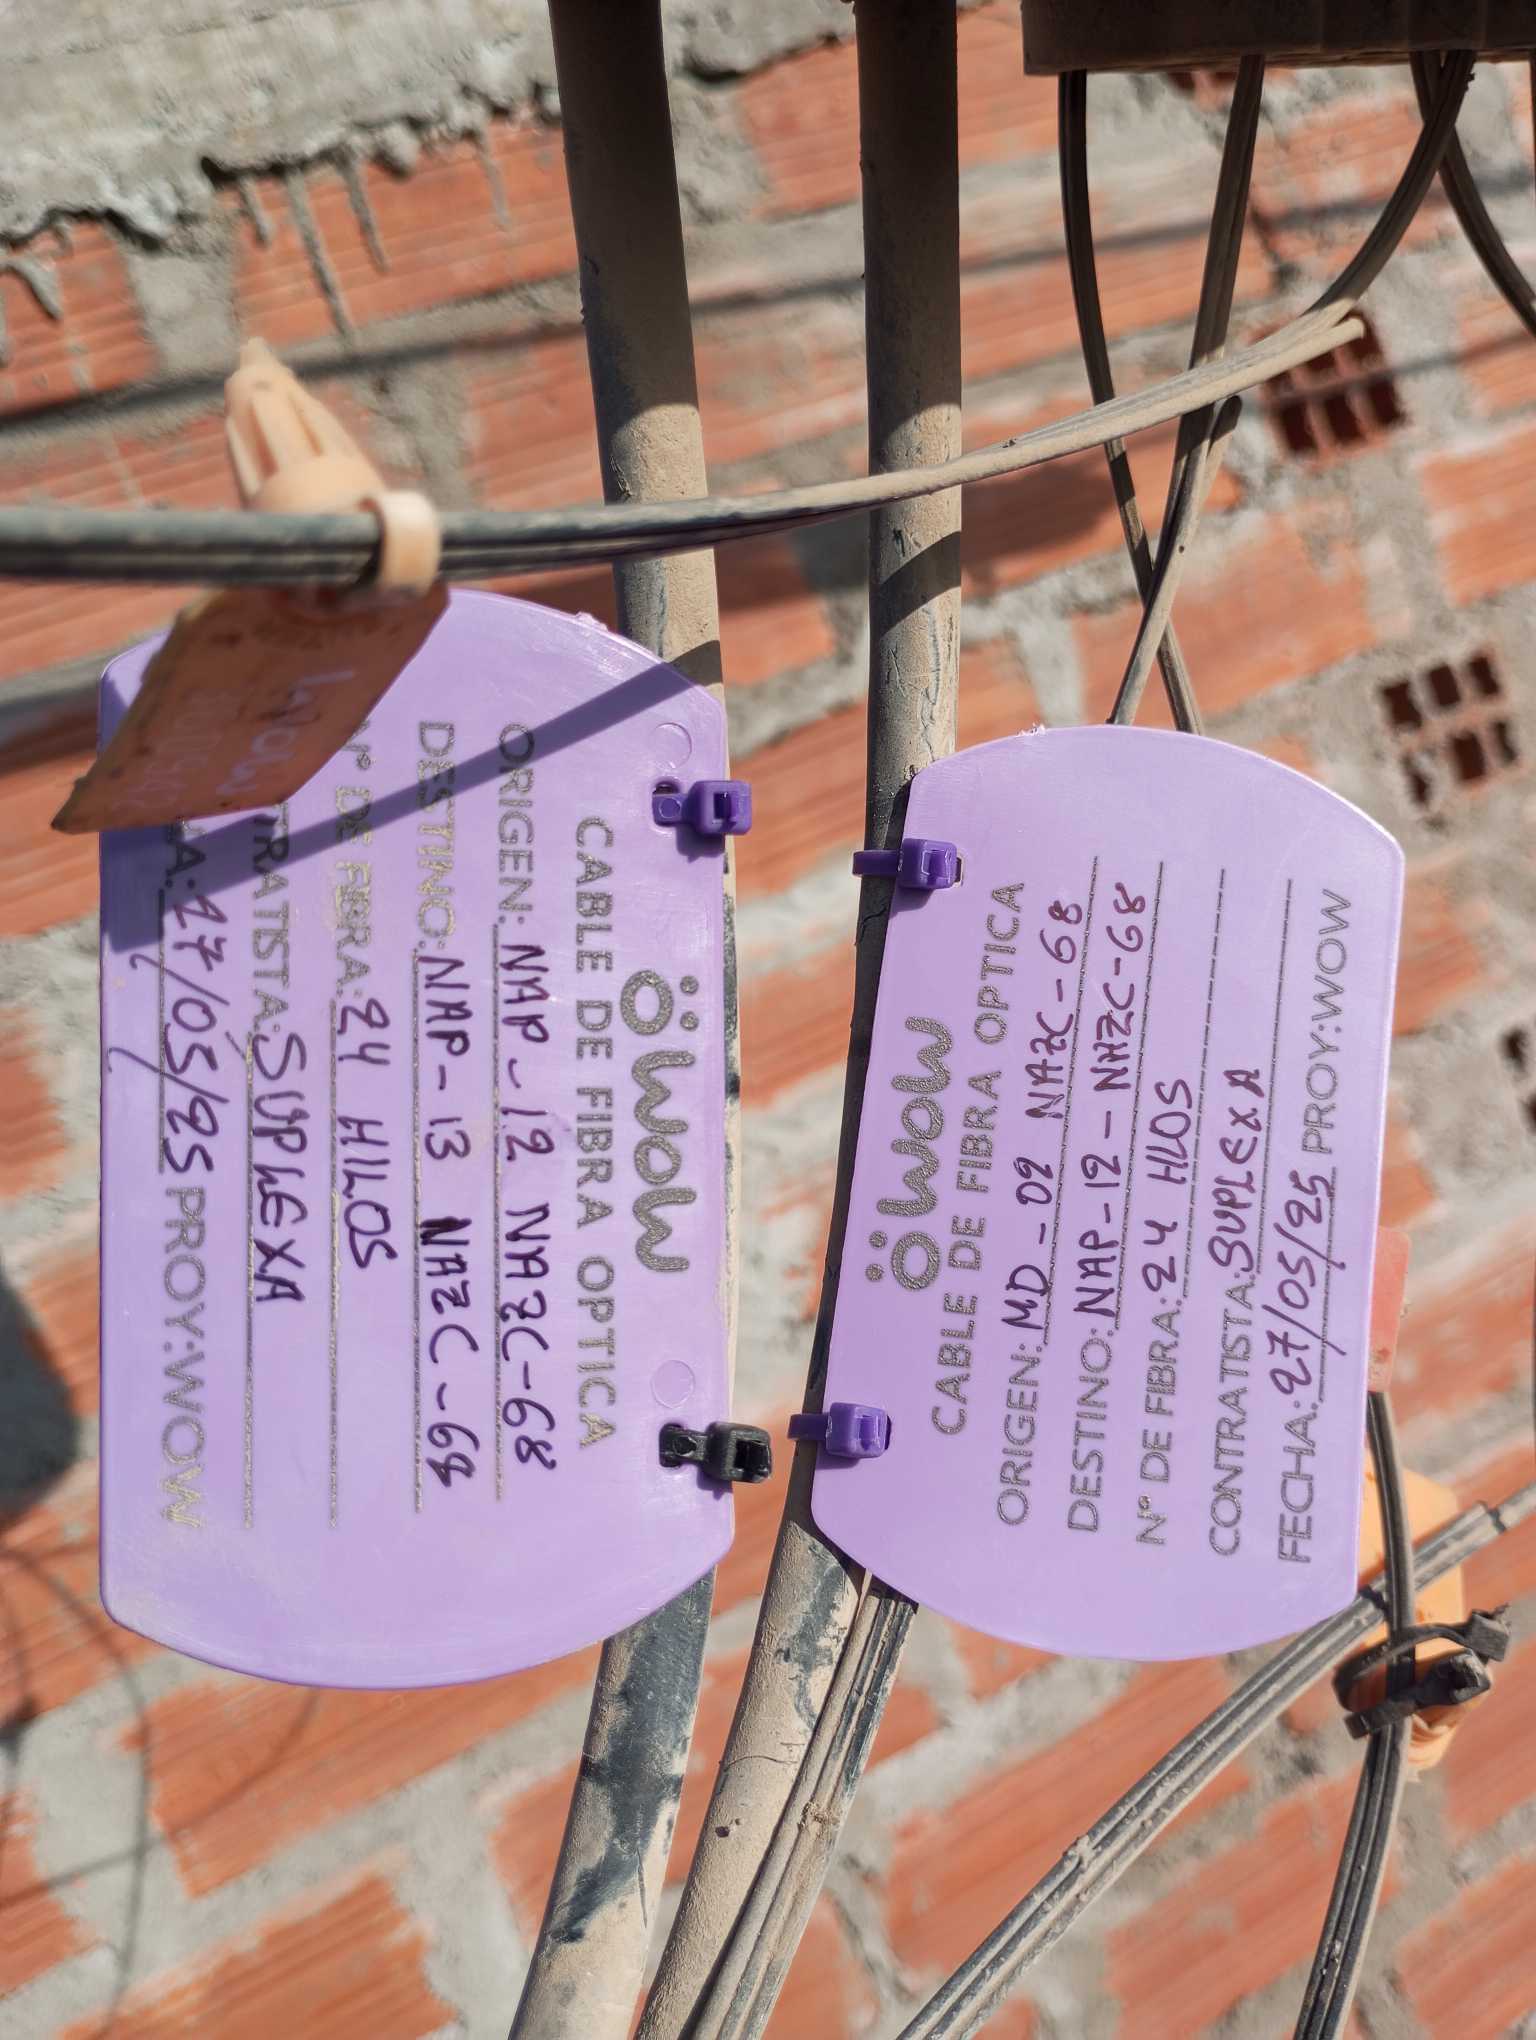 wow
CABLE DE FIBRA OPTICA
ORIGEN: NAP-12 NAZC-68
DESTINO: NAP-13 NAZC-68
N° DE FIBRA: 24 HILOS
TRATISTA: SUPLEXA
A: 27/05/25 PROY:WOW
wow
CABLE DE FIBRA OPTICA
ORIGEN: MD-02 NAZC-68
DESTINO: NAP-12-NAZC-68
N° DE FIBRA: 24 HLOS
CONTRATISTA: SUPLEXA
FECHA: 27/05/25 PROY:WOW